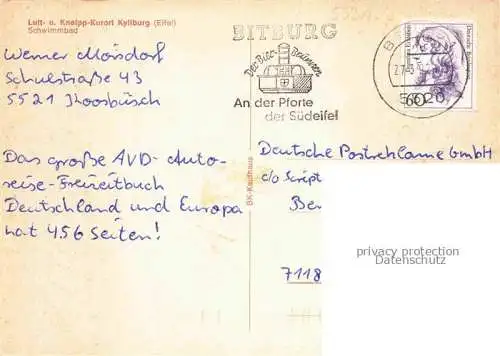 Luft- u. Kneipp-Kurort Kyllburg (Eifel)
Schwimmbad
BITBURG
Der Bier-Brunnen
An der Pforte
der Südeifel
5520
60
Werner Morsdorf
Schulstraße 43
5521 Koosbüsch
Das große AVD-Auto-
reise-Freizeitbuch
Deutschland und Europa
hat 456 Seiten!
BK-Kaufhaus
Deutsche Postreklame GmbH
c/o Script
Ber
7118
privacy protection
Datenschutz